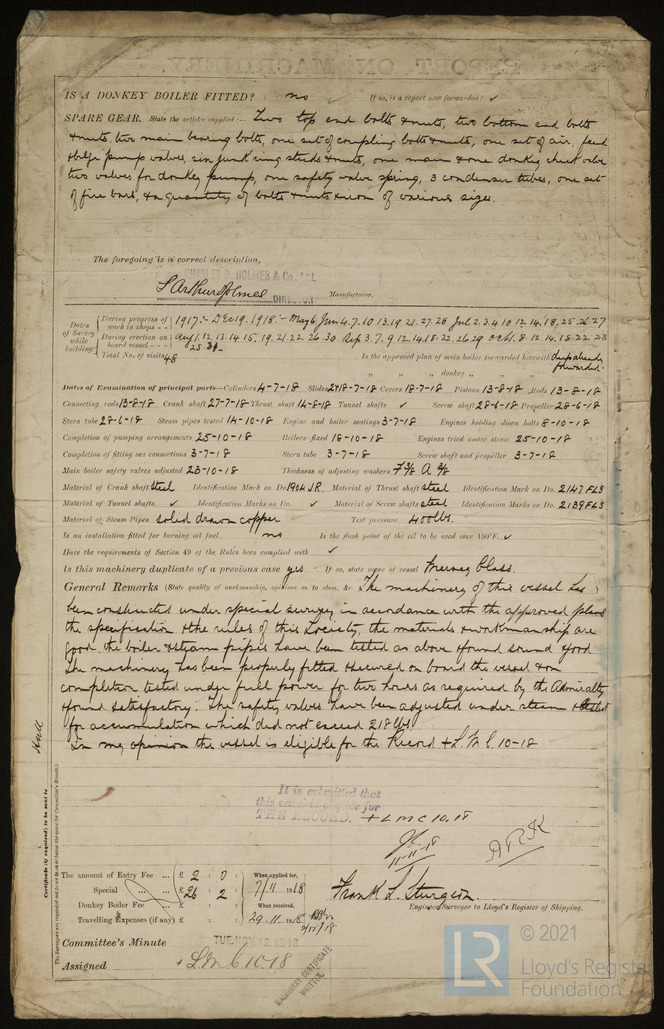 IS A DONKEY BOILER FITTED? no ✓ If so, is a report now forwarded? ✓
SPARE GEAR. State the articles supplied:— Two top end bolts & nuts, two bottom end bolts
& nuts, two main bearing bolts, one set of coupling bolts & nuts, one set of air, feed
& bilge pump valves, six junk ring studs & nuts, one main & one donkey check valve
two valves for donkey pump, one safety valve spring, 3 condenser tubes, one set
of fire bars, & a quantity of bolts & nuts & iron of various sizes.
The foregoing is a correct description,
CHARLES D. HOLMES & Co., Ltd.
S Arthur Holmes DIRECTOR Manufacturer.
Dates of Survey while building
During progress of work in shops - - 1917:- Dec 19. 1918:- May 6 Jun 4.7.10 13.19.21.27.28 Jul 2.3.4.10 12.14.18.25.26.27
During erection on board vessel - - - Aug 1. 12.13.14.15.19.21.22.26.30 Sep 3.7.9.12.14.18.22.26.29 Oct 1.8.12.14.18.22.23
25 31
Total No. of visits 48 Is the approved plan of main boiler forwarded herewith dup already forwarded.
" " " donkey " " "
Dates of Examination of principal parts—Cylinders 4-7-18 Slides 24 18-7-18 Covers 18-7-18 Pistons 13-8-18 Rods 13-8-18
Connecting rods 13-8-18 Crank shaft 27-7-18 Thrust shaft 14-8-18 Tunnel shafts ✓ Screw shaft 28-6-18 Propeller 28-6-18
Stern tube 28-6-18 Steam pipes tested 14-10-18 Engine and boiler seatings 3-7-18 Engines holding down bolts 8-10-18
Completion of pumping arrangements 25-10-18 Boilers fixed 18-10-18 Engines tried under steam 25-10-18
Completion of fitting sea connections 3-7-18 Stern tube 3-7-18 Screw shaft and propeller 3-7-18
Main boiler safety valves adjusted 23-10-18 Thickness of adjusting washers F 3/8 A 3/8
Material of Crank shaft steel Identification Mark on Do. 1904 JR. Material of Thrust shaft steel Identification Mark on Do. 2147 FLS
Material of Tunnel shafts ✓ Identification Marks on Do. ✓ Material of Screw shafts steel Identification Marks on Do. 2139 FLS
Material of Steam Pipes solid drawn copper Test pressure 400 lbs.
Is an installation fitted for burning oil fuel no Is the flash point of the oil to be used over 150°F. ✓
Have the requirements of Section 49 of the Rules been complied with ✓
Is this machinery duplicate of a previous case yes If so, state name of vessel Mersey Class.
General Remarks (State quality of workmanship, opinions as to class, &c. The machinery of this vessel has
been constructed under special survey in accordance with the approved plans
the specification & the rules of this Society, the materials & workmanship are
good, the boiler & steam pipes have been tested as above & found sound & good
The machinery has been properly fitted & secured on board the vessel & on
completion tested under full power for two hours as required by the Admiralty
& found satisfactory. The safety valves have been adjusted under steam & tested
for accumulation which did not exceed 218 lbs.
In my opinion the vessel is eligible for the Record + L.M.C. 10-18
Certificate (if required) to be sent to Hull
It is submitted that
this vessel is eligible for
THE RECORD. + LMC 10.18
11-11-18
ARK
The amount of Entry Fee ... £ 2 : 0 : When applied for, 7/11 1918
Special ... £ 26 : 2 :
Donkey Boiler Fee ... £ : : When received,
Travelling Expenses (if any) £ : : 29.11.1918
Frank L. Sturgeon.
Engineer Surveyor to Lloyd's Register of Shipping.
Committee's Minute TUE. NOV. 12. 1918
Assigned + L.M.C. 10.18
MACHINERY CERTIFICATE
WRITTEN
LR © 2021
Lloyd's Register
Foundation